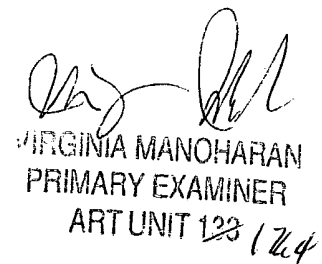 VIRGINIA MANOHARAN
PRIMARY EXAMINER
ART UNIT 123 1764